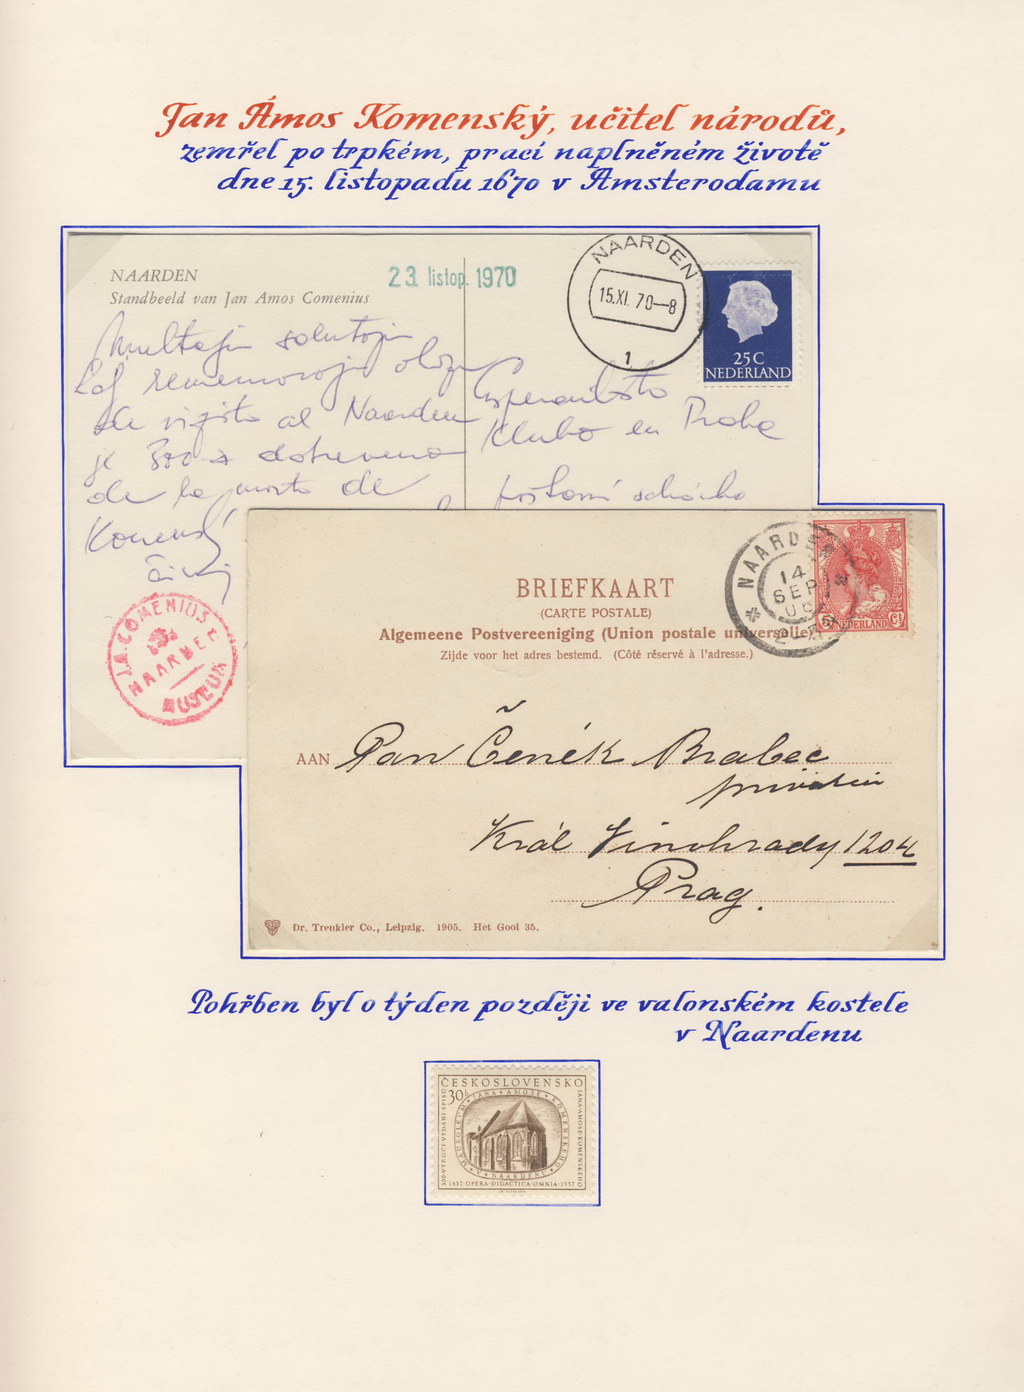 Jan Ámos Komenský, učitel národů,
zemřel po trpkém, prací naplněném životě
dne 15. listopadu 1670 v Amsterodamu
NAARDEN
Standbeeld van Jan Amos Comenius
23. listop. 1970
NAARDEN
15.XI. 70—8
1
25 C
NEDERLAND
Multajn salutojn
kaj rememorojn
de vizito al Naarden
je 300-a
de la morto de
Esperantisto
Klubo en Praha
J.A. COMENIUS
NAARDEN
MUSEUM
BRIEFKAART
(CARTE POSTALE)
Algemeene Postvereeniging (Union postale universelle)
Zijde voor het adres bestemd. (Côté réservé à l'adresse.)
NAARDEN
14
SEP
06
NEDERLAND
AAN Pan Čeněk Brabec
Král Vinohrady 1204
Prag.
Dr. Trenkler Co., Leipzig. 1905. Het Gooi 35.
Pohřben byl o týden později ve valonském kostele
v Naardenu
ČESKOSLOVENSKO
30h
MAUSOLEUM JANA AMOSE KOMENSKÉHO
V NAARDENU
300.VÝROČÍ VYDÁNÍ SPISŮ
JANA AMOSE KOMENSKÉHO
1657·OPERA·DIDACTICA·OMNIA·1957